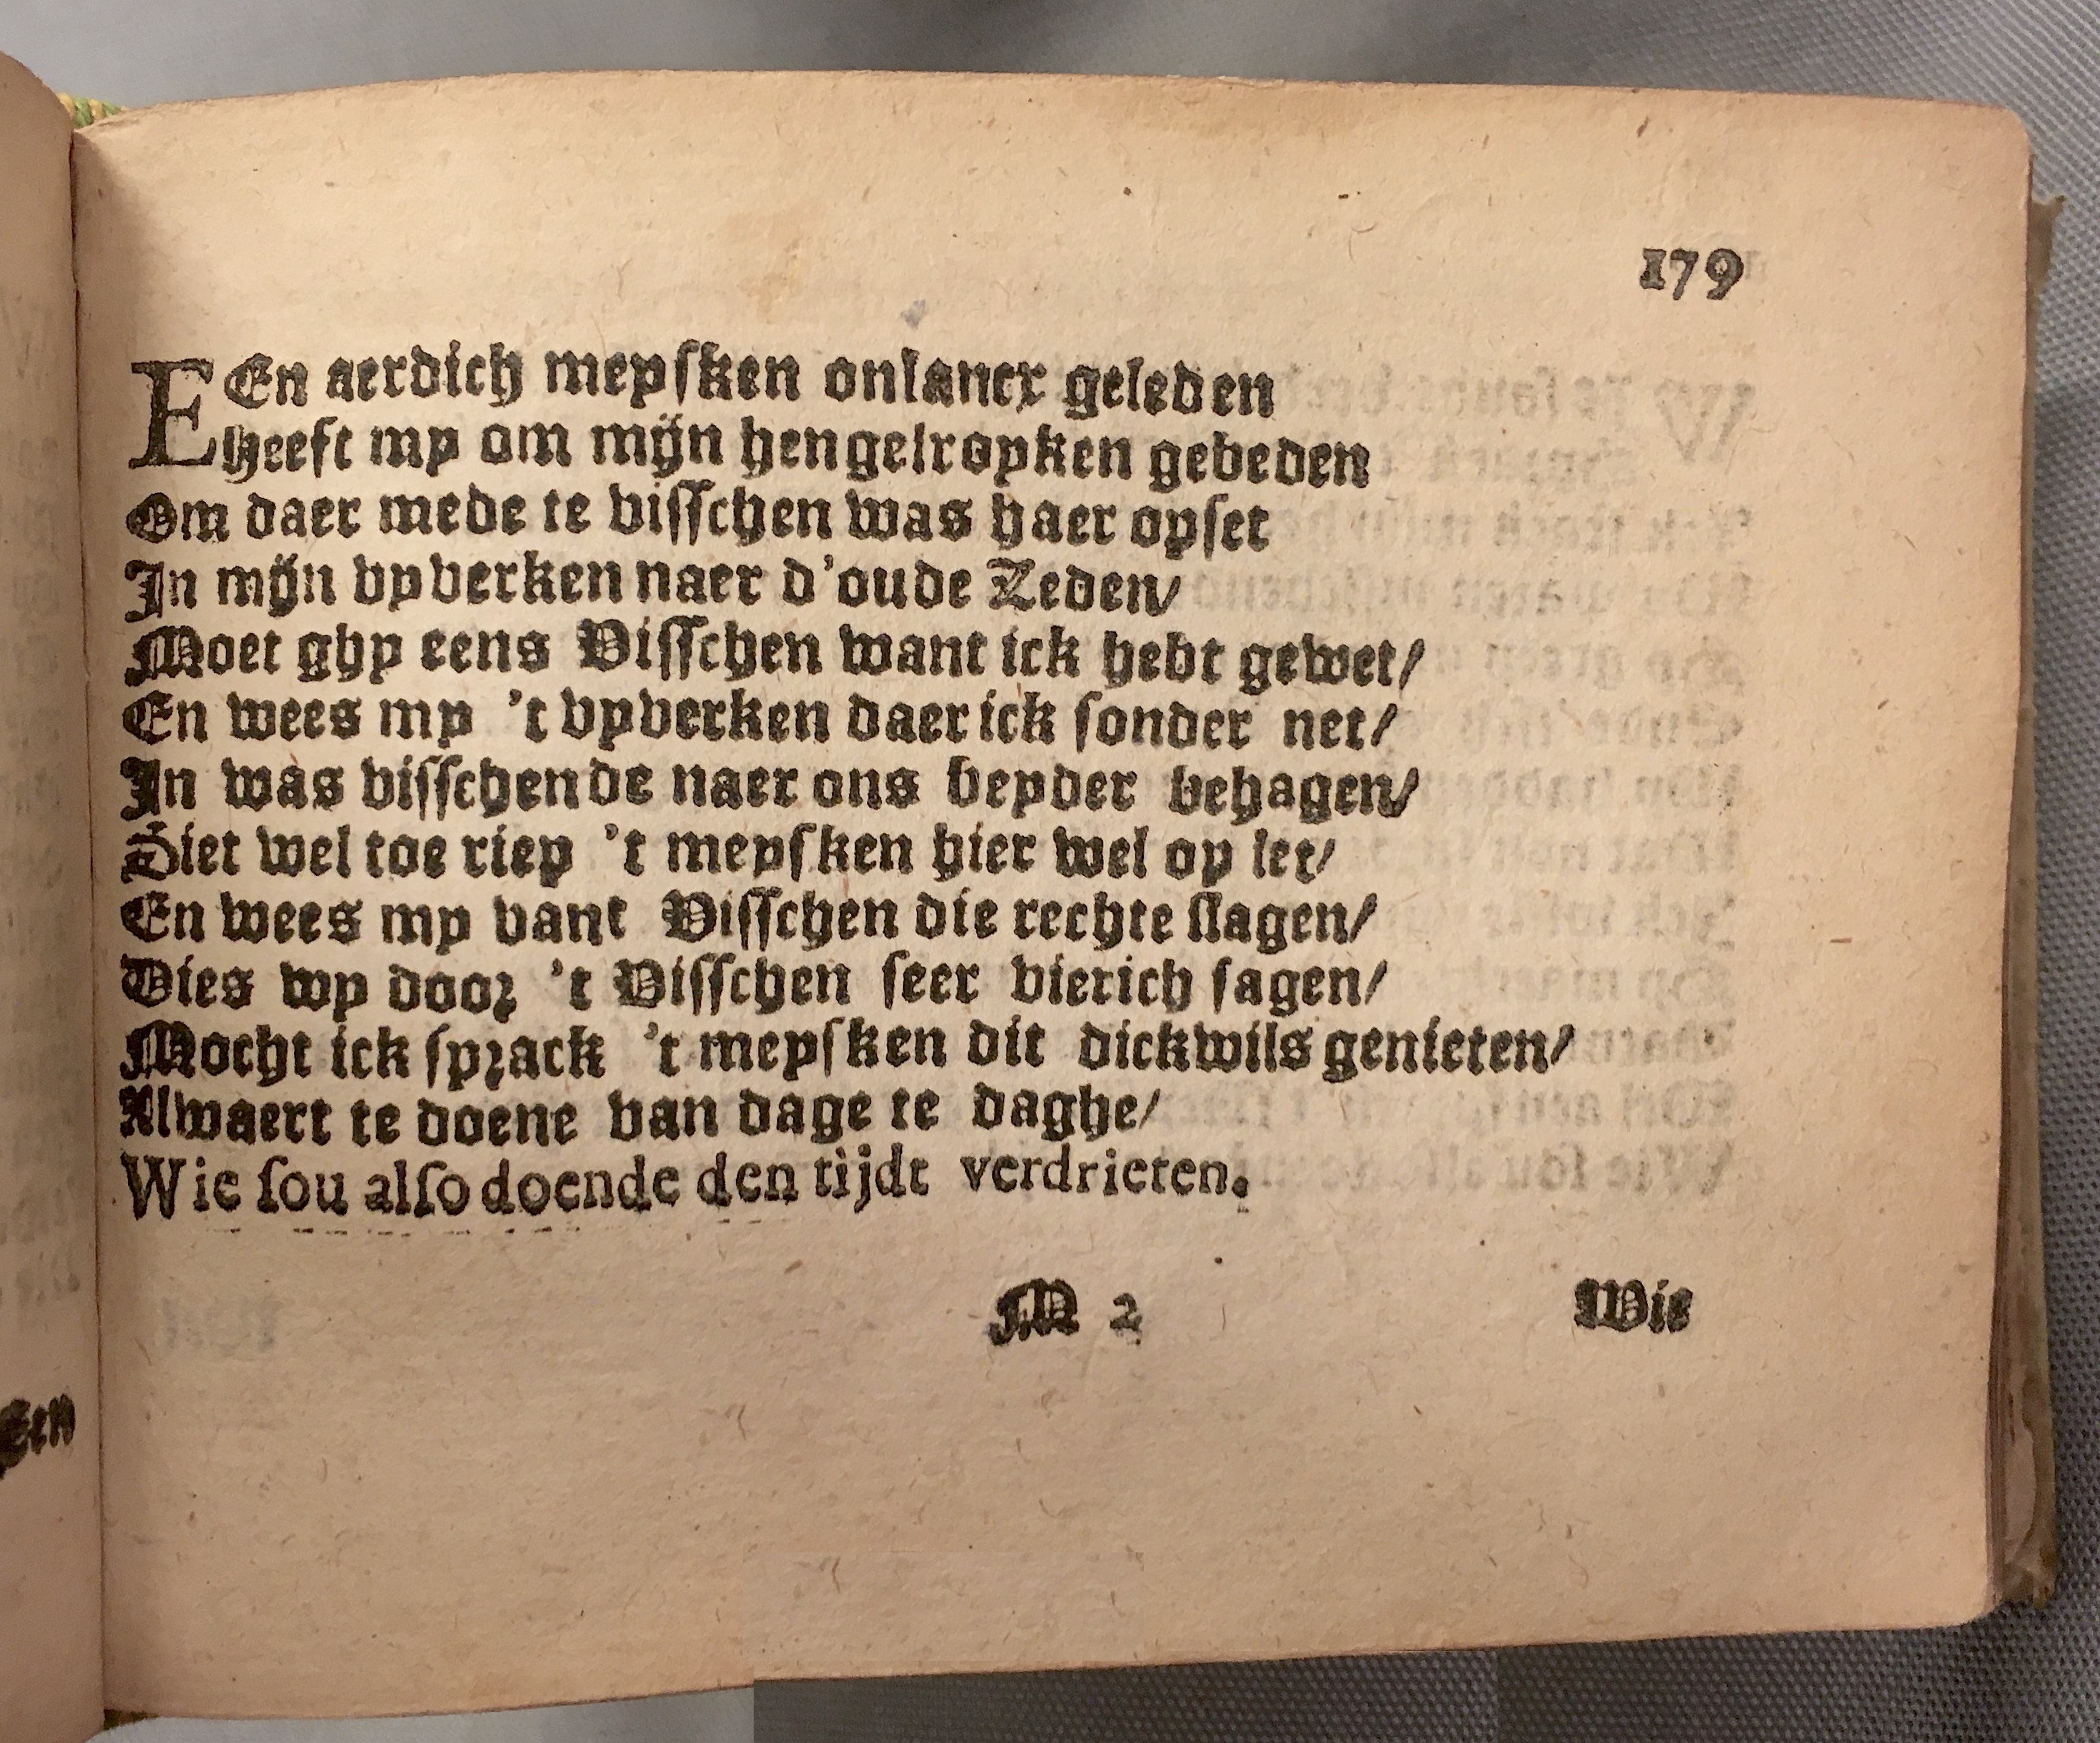 179
EEn aerdich meysken onlancx geleden
Heeft my om mijn hengelroyken gebeden
Om daer mede te visschen was haer opset
In mijn vyverken naer d'oude Zeden/
Moet ghy eens Visschen want ick hebt gewet/
En wees my 't vyverken daer ick sonder net/
In was visschende naer ons beyder behagen/
Siet wel toe riep 't meysken hier wel op let/
En wees my vant Visschen die rechte slagen/
Dies wy door 't Visschen seer vierich lagen/
Mocht ick sprack 't meysken dit dickwils genieten/
Alwaert te doene van dage te daghe/
Wie sou also doende den tijdt verdrieten.
M 2 Wie
Een